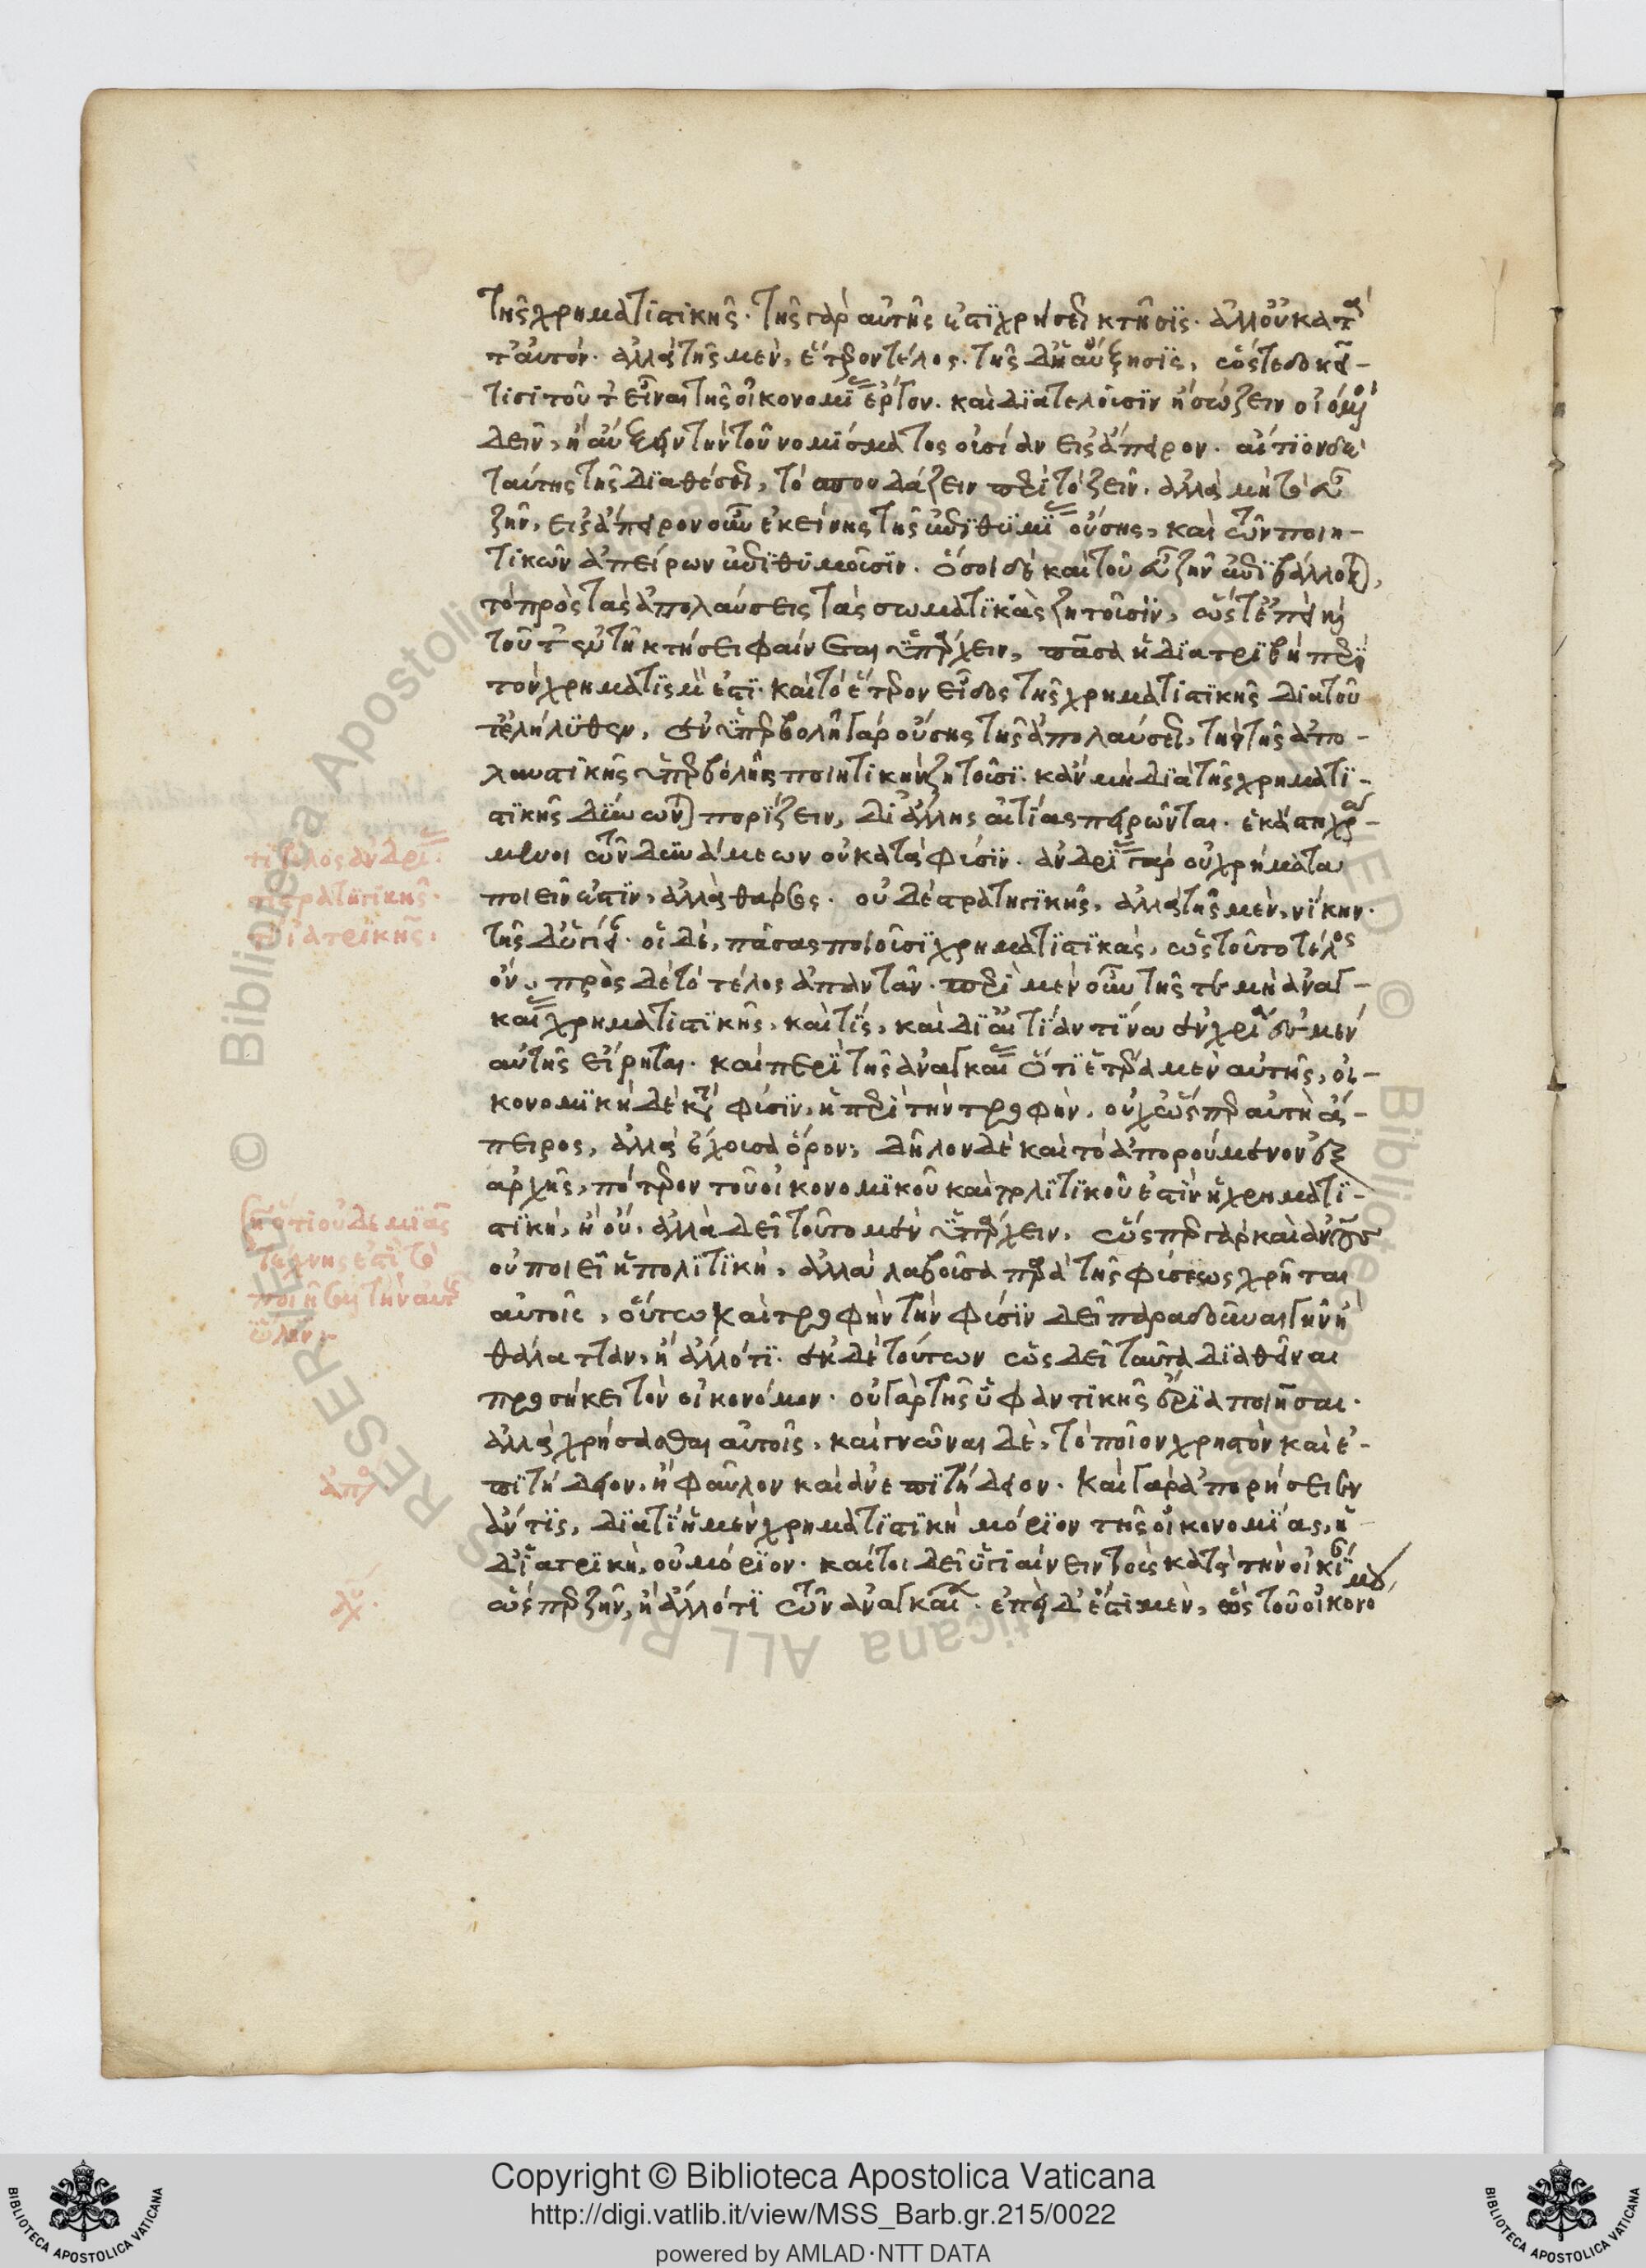 τῆς χρηματιστικῆς· τῆς γὰρ αὐτῆς ἐστὶ χρήσεως κτῆσις· ἀλλ' οὐ κατὰ
ταὐτόν· ἀλλὰ τῆς μὲν, ἕτερον τέλος· τῆς δ' ἡ αὔξησις, ὥστε δοκεῖ
τισὶ τοῦτ' εἶναι τῆς οἰκονομίας ἔργον. καὶ διατελοῦσιν ἢ σώζειν οἰόμενοι
δεῖν, ἢ αὔξειν τὴν τοῦ νομίσματος οὐσίαν εἰς ἄπειρον. αἴτιον δὲ
ταύτης τῆς διαθέσεως, τὸ σπουδάζειν περὶ τὸ ζεῖν, ἀλλὰ μὴ τὸ εὖ
ζῆν, εἰς ἄπειρον οὖν ἐκείνης τῆς ἐπιθυμίας οὔσης, καὶ τῶν ποιη-
τικῶν ἀπείρων ἐπιθυμοῦσιν. ὅσοι δὲ καὶ τοῦ εὖ ζῆν ἐπιβάλλονται,
τὸ πρὸς τὰς ἀπολαύσεις τὰς σωματικὰς ζητοῦσιν, ὥστ' ἐπεὶ καὶ
τοῦτ' ἐν τῇ κτήσει φαίνεται ὑπάρχειν, πᾶσα ἡ διατριβὴ περὶ
τὸν χρηματισμόν ἐστι· καὶ τὸ ἕτερον εἶδος τῆς χρηματιστικῆς διὰ τοῦ
τ' ἐλήλυθεν, ἐν ὑπερβολῇ γὰρ οὔσης τῆς ἀπολαύσεως, τὴν τῆς ἀπο-
λαυστικῆς ὑπερβολῆς ποιητικὴν ζητοῦσι· κἂν μὴ διὰ τῆς χρηματι-
στικῆς δύνωνται πορίζειν, δι' ἄλλης αἰτίας πειρῶνται. ἑκάστῃ χρώ-
μενοι τῶν δυνάμεων οὐ κατὰ φύσιν. ἀνδρίας γὰρ οὐ χρήματα
ποιεῖν ἐστὶν, ἀλλὰ θάρσος. οὐδὲ στρατηγικῆς, ἀλλὰ τῆς μὲν, νίκην.
τῆς δ' ὑγίειαν. οἱ δὲ, πάσας ποιοῦσι χρηματιστικὰς, ὡς τοῦτο τέλος
ὂν, πρὸς δὲ τὸ τέλος ἅπαν ταν. περὶ μὲν οὖν τῆς τε μὴ ἀναγ-
καίας χρηματιστικῆς, καὶ τίς, καὶ δι' αἰτίαν τίνα ἐν χρείᾳ ἐσμὲν
αὐτῆς εἴρηται. καὶ περὶ τῆς ἀναγκαίας ὅτι ἑτέρα μὲν αὐτῆς, οἰ-
κονομικὴ δὲ κατὰ φύσιν, ἡ περὶ τὴν τροφὴν, οὐχ ὥσπερ αὐτὴ ἄ-
πειρος, ἀλλὰ ἔχουσα ὅρον, δῆλον δὲ καὶ τὸ ἀπορούμενον ἐξ
ἀρχῆς, πότερον τοῦ οἰκονομικοῦ καὶ πολιτικοῦ ἐστὶν ἡ χρηματι-
στικὴ, ἢ οὔ, ἀλλὰ δεῖ τοῦτο μὲν ὑπάρχειν, ὥσπερ γὰρ καὶ ἀνθρώπους
οὐ ποιεῖ ἡ πολιτικὴ, ἀλλὰ λαβοῦσα παρὰ τῆς φύσεως χρῆται
αὐτοῖς, οὕτω καὶ τροφὴν τὴν φύσιν δεῖ παραδοῦναι γῆν ἢ
θάλατταν, ἢ ἄλλό τι. ἐκ δὲ τούτων ὡς δεῖ ταῦτα διαθεῖναι
προσήκει τὸν οἰκονόμον. οὐ γὰρ τῆς ὑφαντικῆς ἔρια ποιῆσαι.
ἀλλὰ χρήσασθαι αὐτοῖς, καὶ γνῶναι δὲ, τὸ ποῖον χρηστὸν καὶ ἐ-
πιτήδειον, ἢ φαῦλον καὶ ἀνεπιτήδειον. καὶ γὰρ ἀπορήσειεν
ἄν τις, διατί ἡ μὲν χρηματιστικὴ μόριον τῆς οἰκονομίας, ἡ
δ' ἰατρικὴ, οὐ μόριον. καίτοι δεῖ ὑγιαίνειν τοὺς κατὰ τὴν οἰκίαν
ὥσπερ ζῆν, ἢ ἄλλό τι τῶν ἀναγκαίων. ἐπεὶ δ' ἔστι μὲν, ὡς τοῦ οἰκονόμου
τί τέλος ἀνδρίας·
στρατηγικῆς·
ἰατρικῆς·
ὅτι οὐδεμιᾶς
τέχνης ἐστὶ τὸ
ποιῆσαι τὴν αὑτῆς
ὕλην·
ἀπορία
λύσις
Copyright © Biblioteca Apostolica Vaticana
http://digi.vatlib.it/view/MSS_Barb.gr.215/0022
powered by AMLAD·NTT DATA
BIBLIOTECA APOSTOLICA VATICANA
BIBLIOTECA APOSTOLICA VATICANA